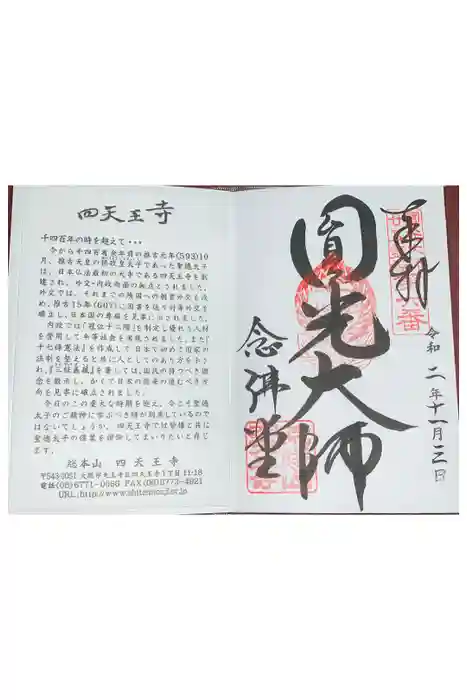 四天王寺
千四百年の時を超えて・・・
今から千四百有余年前の推古元年(593)10
月、推古天皇の摂政皇太子であった聖徳太子
は、日本仏法最初の大寺である四天王寺を創
建され、外交・内政両面の拠点とされました。
外交では、それまでの隣国への朝貢外交を改
め、推古15年(607)に国書を送り対等外交を
樹立し、日本国の尊厳を見事に示されました。
内政では『冠位十二階』を制定し優れた人材
を登用して平等社会を実現されました。また『
十七條憲法』を作成して日本で初めて国家の
法制を整えると共に人としてのあり方を示さ
れ、『三経義疏』を著しては、国民の持つべき理
念を教示し、かくて日本の将来の進むべき方
向を見事に確立されました。
今日のこの重大な時期を迎え、今こそ聖徳
太子のご精神に学ぶべき時が到来しているので
はないでしょうか。四天王寺では皆様と共に
聖徳太子の偉業を讃仰してまいりたいと存じ
ます。
総本山 四天王寺
〒543-0051 大阪市天王寺区四天王寺1丁目11-18
電話(06)6771-0066 FAX(06)6773-4921
URL:http://www.shitennoji.or.jp
奉拝
圓光大師
念佛堂
令和二年十一月三日